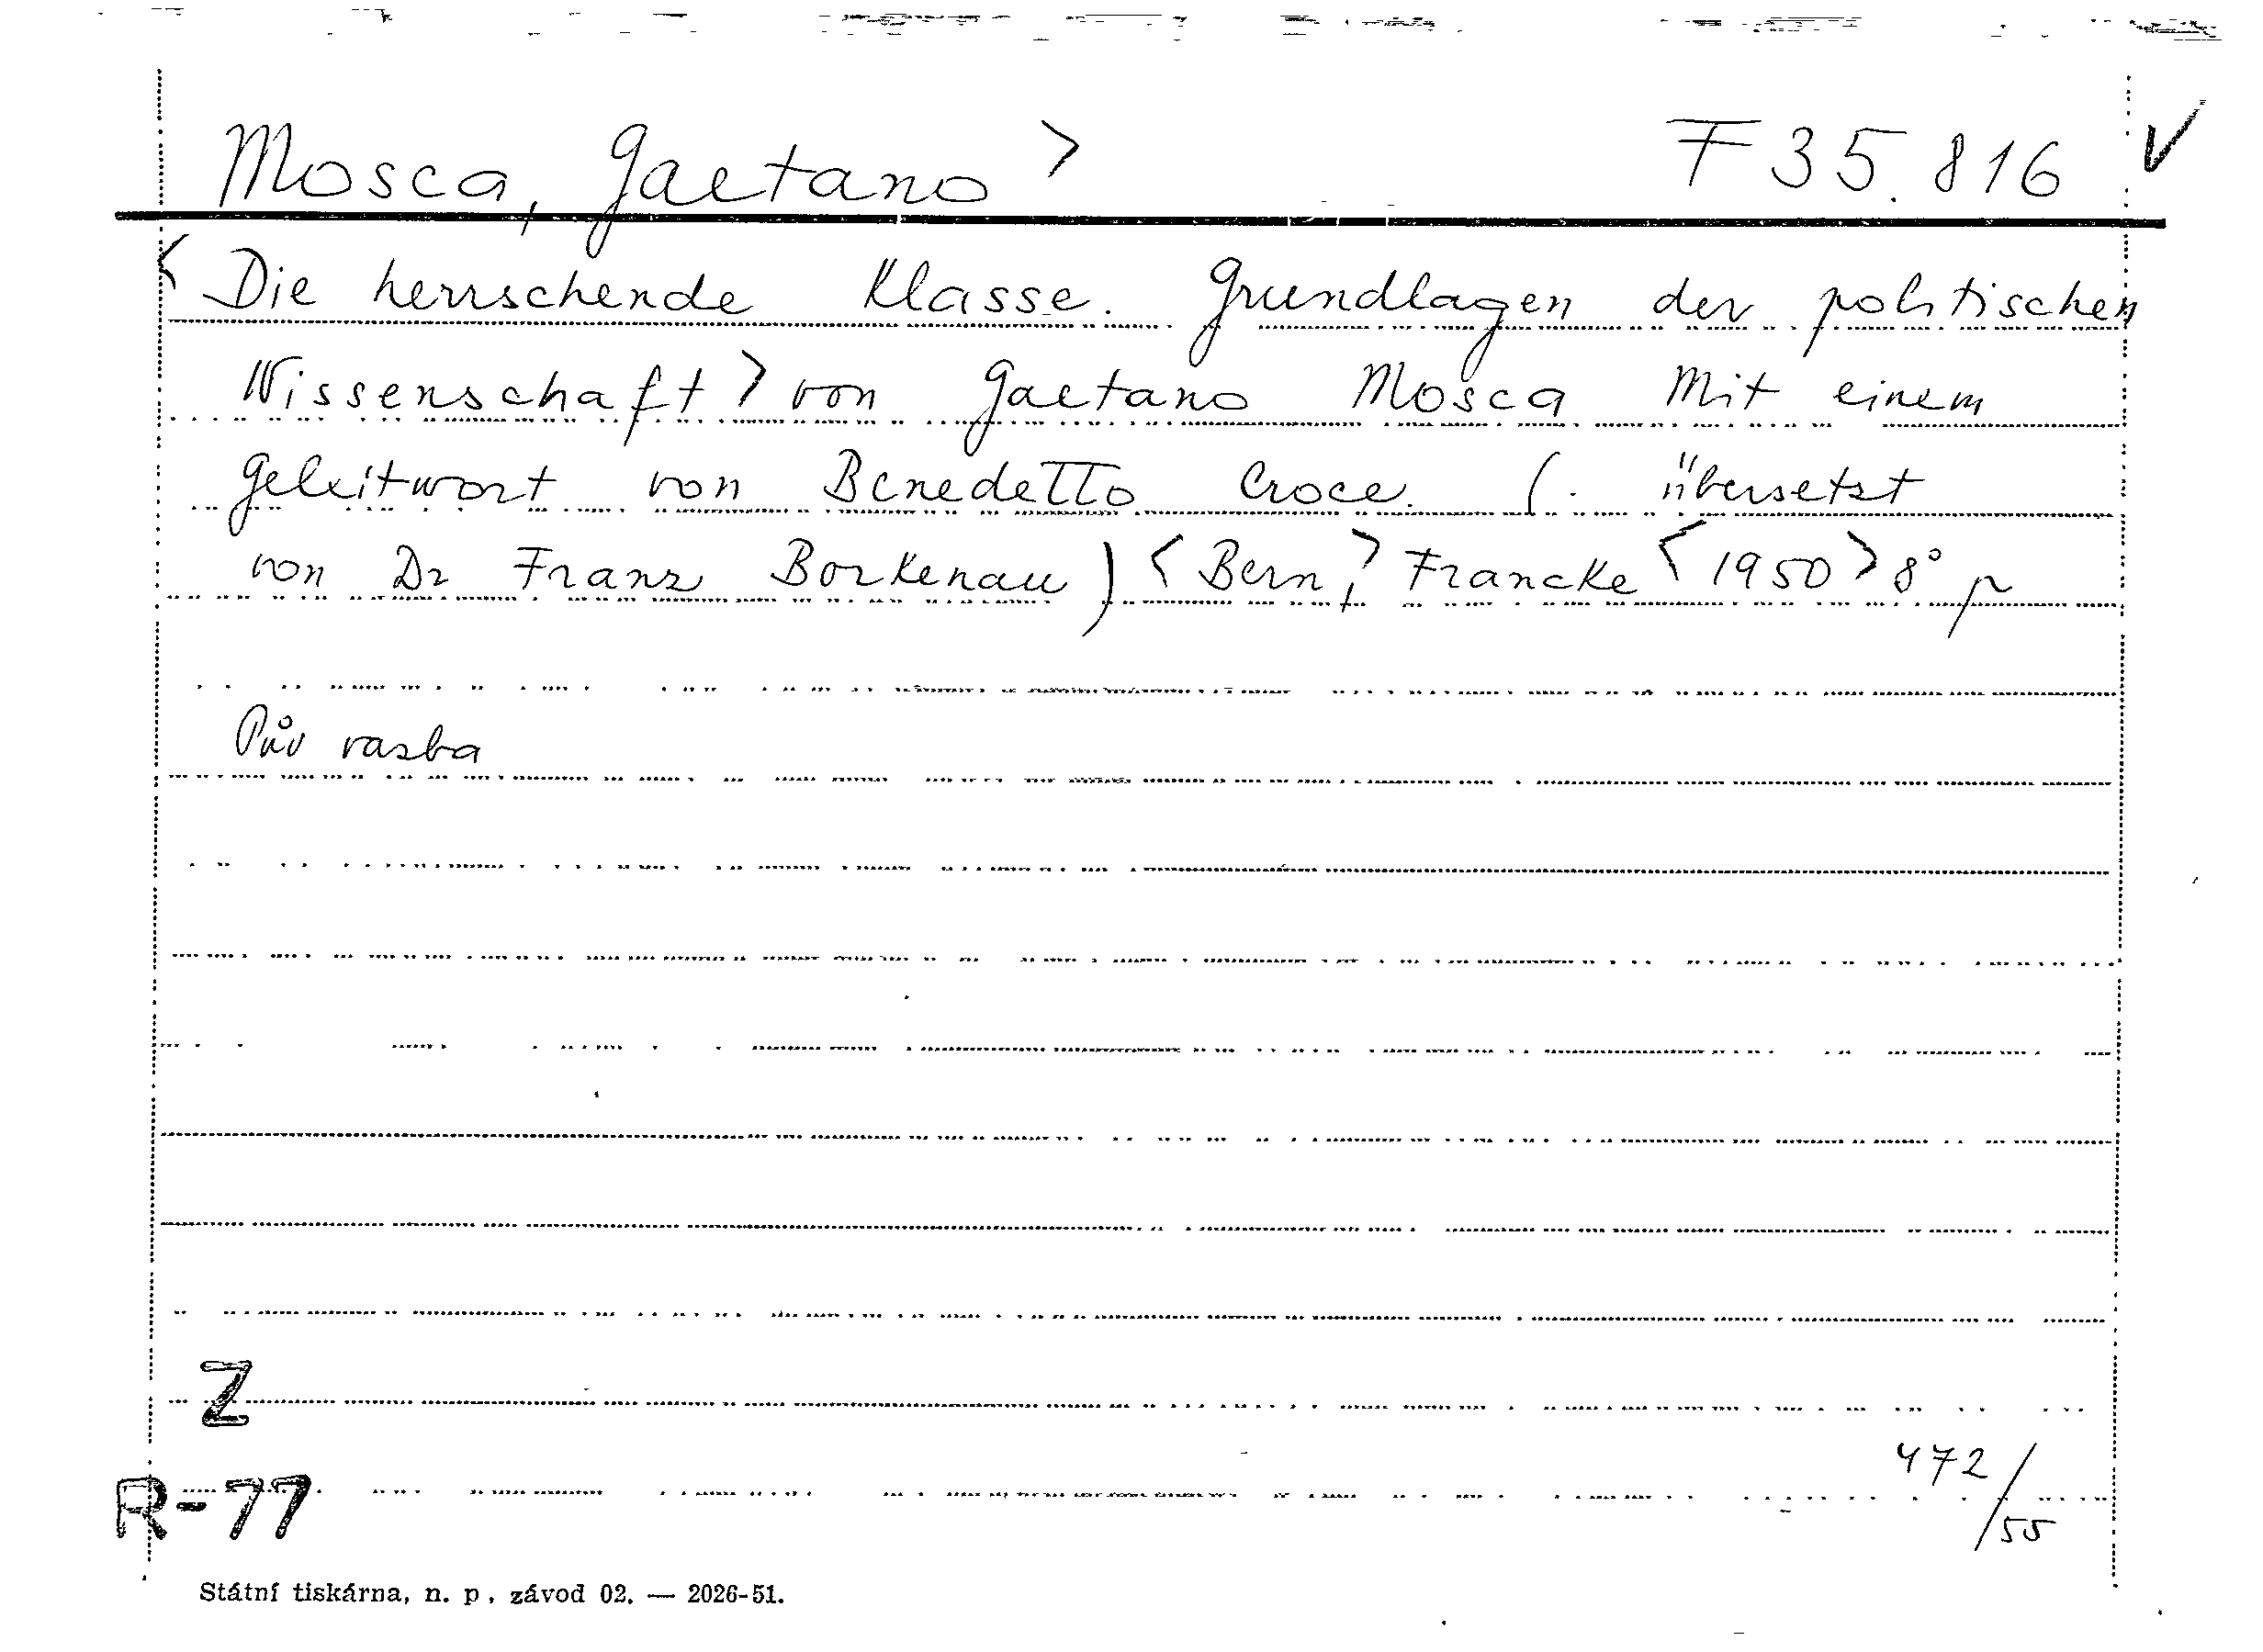 Mosca, Gaetano > F 35.816 V
< Die herrschende Klasse. Grundlagen der politischen
Wissenschaft > von Gaetano Mosca Mit einem
Geleitwort von Benedetto Croce. (. übersetzt
von Dr Franz Borkenau) < Bern, > Francke < 1950 > 8° p
Pův vazba
Z
472/55
R-77
Státní tiskárna, n. p., závod 02. — 2026-51.